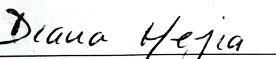 Diana Mejia